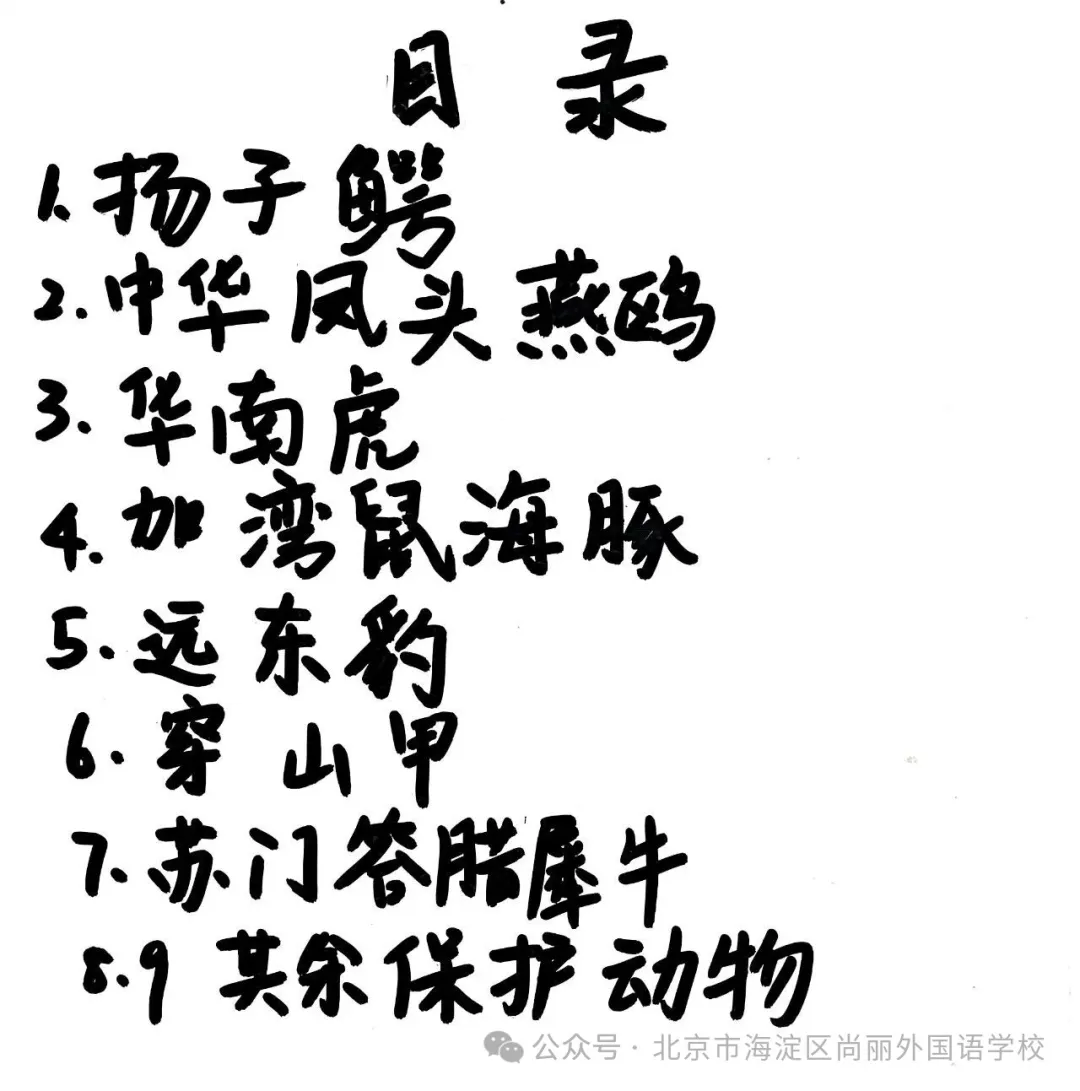 目录
1.扬子鳄
2.中华凤头燕鸥
3.华南虎
4.加湾鼠海豚
5.远东豹
6.穿山甲
7.苏门答腊犀牛
8.9其余保护动物
公众号·北京市海淀区尚丽外国语学校